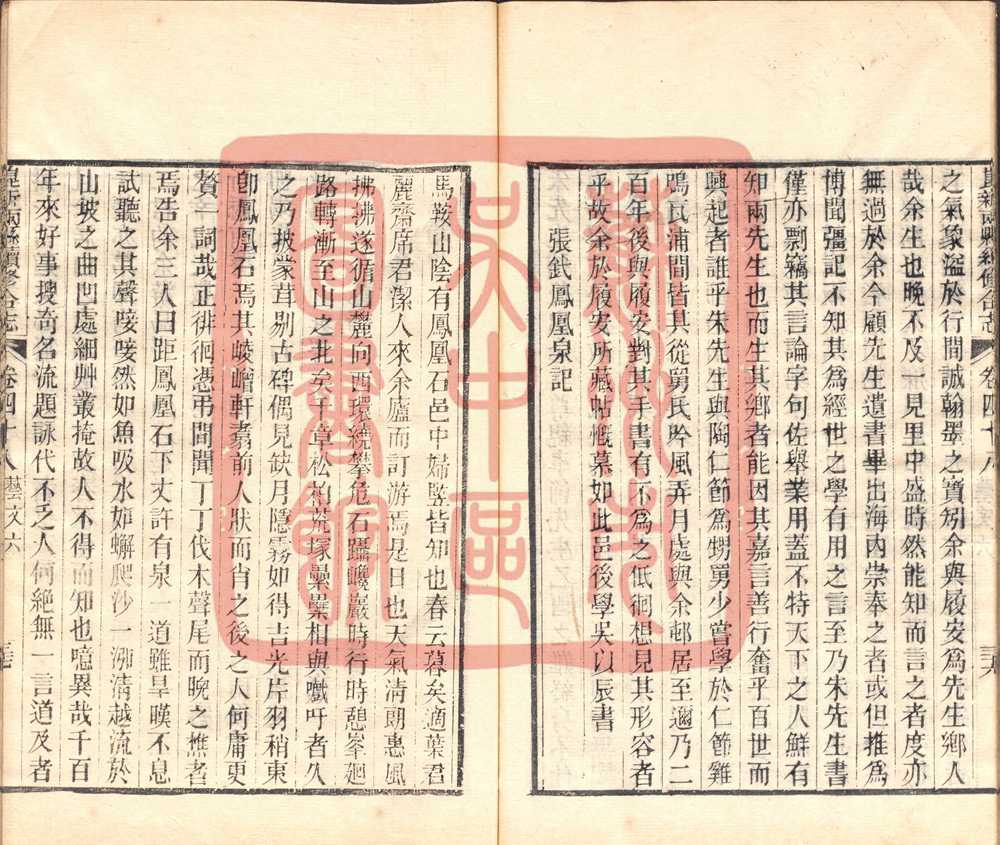 崑新兩縣續修合志 卷四十八
之氣象溢於行間誠翰墨之寶矧余與履安爲先生鄉人
哉余生也晚不及一見里中盛時然能知而言之者度亦
無過於余今顧先生遺書畢出海内崇奉之者或但推爲
博聞彊記不知其爲經世之學有用之言至乃朱先生書
僅亦剽竊其言論字句佐舉業用蓋不特天下之人鮮有
知兩先生也而生其鄉者能因其嘉言善行奮乎百世而
興起者誰乎朱先生與陶仁節爲甥舅少嘗學於仁節雞
鳴瓦浦間皆其從舅氏吟風弄月處與余邨居至邇乃二
百年後與履安對其手書有不爲之低徊想見其形容者
乎故余於履安所藏帖慨慕如此邑後學吳以辰書
張釴鳳凰泉記
馬鞍山陰有鳳凰石邑中婦竪皆知也春云暮矣適葉君
麗齋席君潔人來余廬而訂游焉是日也天氣清朗惠風
拂拂遂循山麓向西環繞攀危石躡巉巖時行時憩峯廻
路轉漸至山之北矣千章松柏荒塚纍纍相與嘅吁者久
之乃披蒙茸剔古碑偶見缺月隱霧如得吉光片羽稍東
卽鳳凰石焉其崚嶒軒翥前人狀而肖之後之人何庸更
贅一詞哉正徘徊憑弔間聞丁丁伐木聲尾而睨之樵者
焉告余三人曰距鳳凰石下丈許有泉一道雖旱暵不息
試聽之其聲唼唼然如魚吸水如蠏爬沙一泖清越流於
山坡之曲凹處細艸叢掩故人不得而知也噫異哉千百
年來好事搜奇名流題詠代不乏人何絶無一言道及者
崑新兩縣續修合志 卷四十八 藝文六
吳中區圖書館